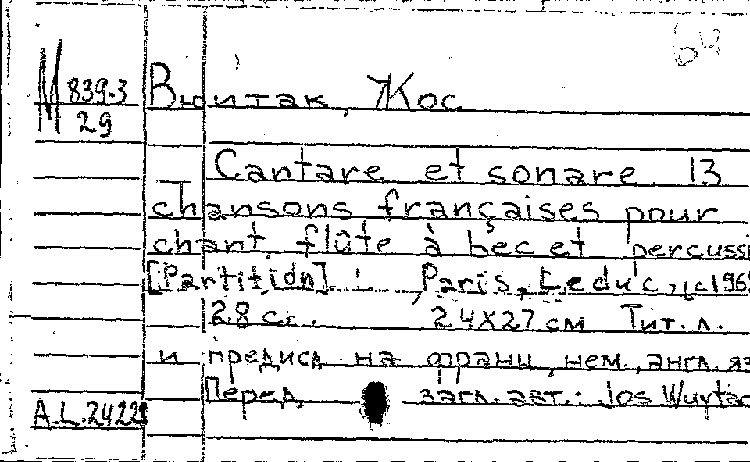 64
М 839-3
29
Вюитак, Жос
Cantare et sonare. 13
chansons françaises pour
chant, flûte à bec et percussi
[Partition]. Paris, Leduc, c1969
28 с. 24х27 см Тит. л.
и предисл на франц, нем., англ. яз
Перед загл. авт.: Jos Wuytac
A.L.24229